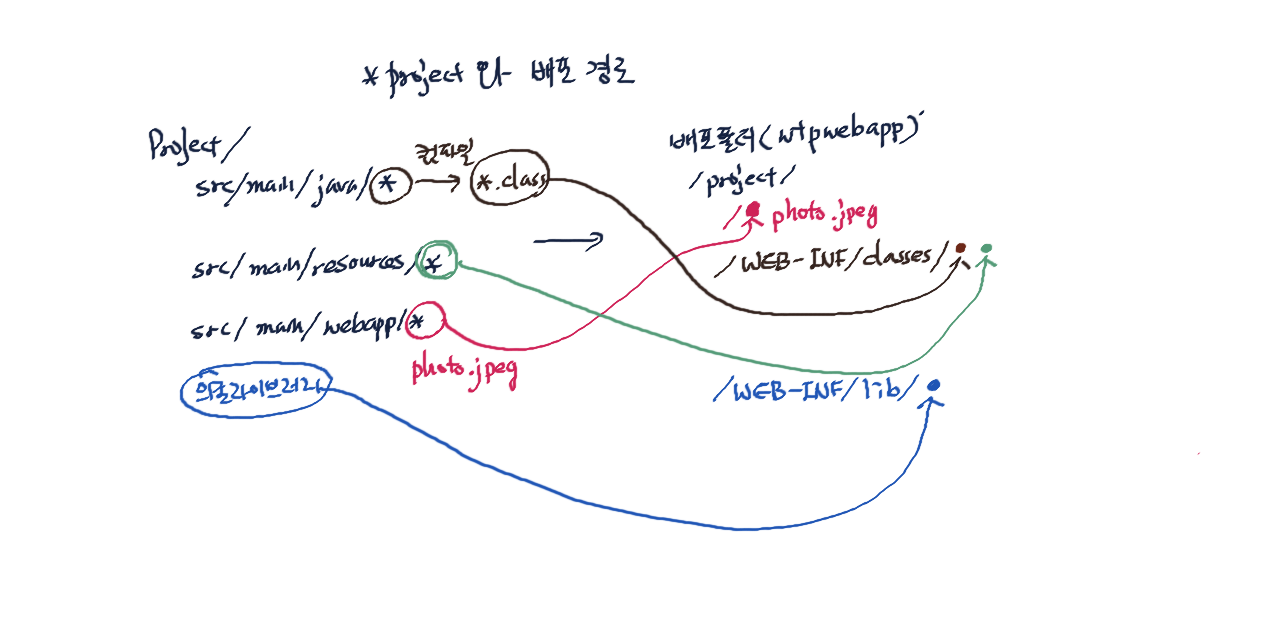 * project 와 배포 경로
Project/
src/main/java/* → *.class
컴파일
src/main/resources/*
src/main/webapp/*
photo.jpeg
의존라이브러리
배포폴더(wtpwebapp)
/project/
/ photo.jpeg
/WEB-INF/classes/
/WEB-INF/lib/